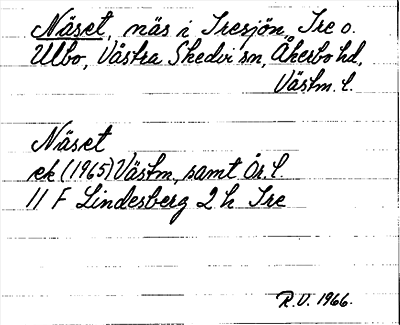 Näset, näs i Iresjön, Ire o.
Ulbo, Västra Skedvi sn, Åkerbo hd,
Västm. l.
Näset
ek (1965) Västm, samt Ör. l.
11 F Lindesberg 2 h Ire
R.D. 1966.